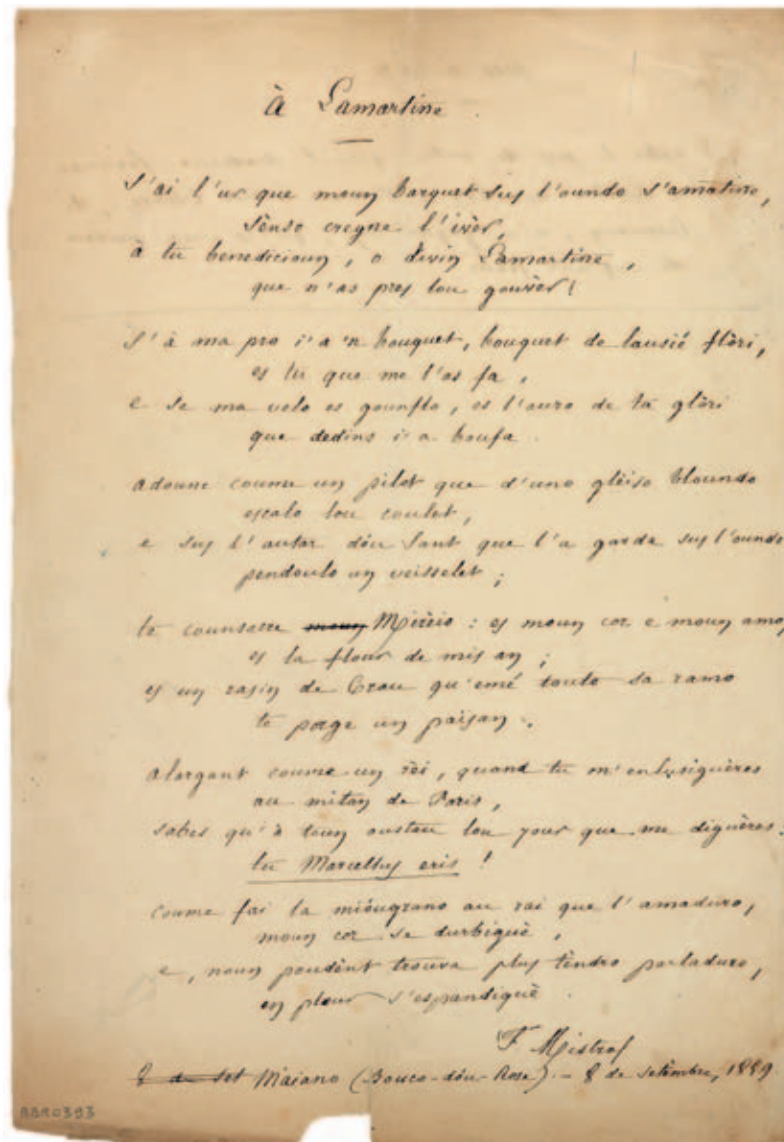 à Lamartine
S'ai l'ur que moun barquet sus l'oundo s'amatino,
Sènso cregne l'ivèr,
à tu benedicioun, o divin Lamartine,
que n'as pres lou gouvèr!
S'à ma pro i'a 'n bouquet, bouquet de lausié flòri,
es tu que me l'as fa,
e se ma velo es gounflo, es l'auro de ta glòri
que dedins i'a boufa.
Adounc coume un pilot que d'uno glèiso bloundo
escalo lou coulet,
e sus l'autar dóu sant que l'a garda sus l'oundo
pendoulo un veisselet;
te counsacre moun Mirèio : es moun cor e moun amo,
es la flour de mis an;
es un rasin de Crau qu'emé touto sa ramo
te porge un païsan.
Alargant coume un rèi, quand tu m'enlusiguères
au mitan de Paris,
sabes qu'à toun oustau lou jour que me diguères:
tu Marcellus eris !
coume fai la mióugrano au rai que l'amaduro,
moun cor se durbiguè,
e, noun poudènt trouva plus tèndro parladuro,
en plour s'espandiguè.
F. Mistral
8 de set Maiano (Bouco-dóu-Rose) - 8 de setèmbre, 1859
RBR0393